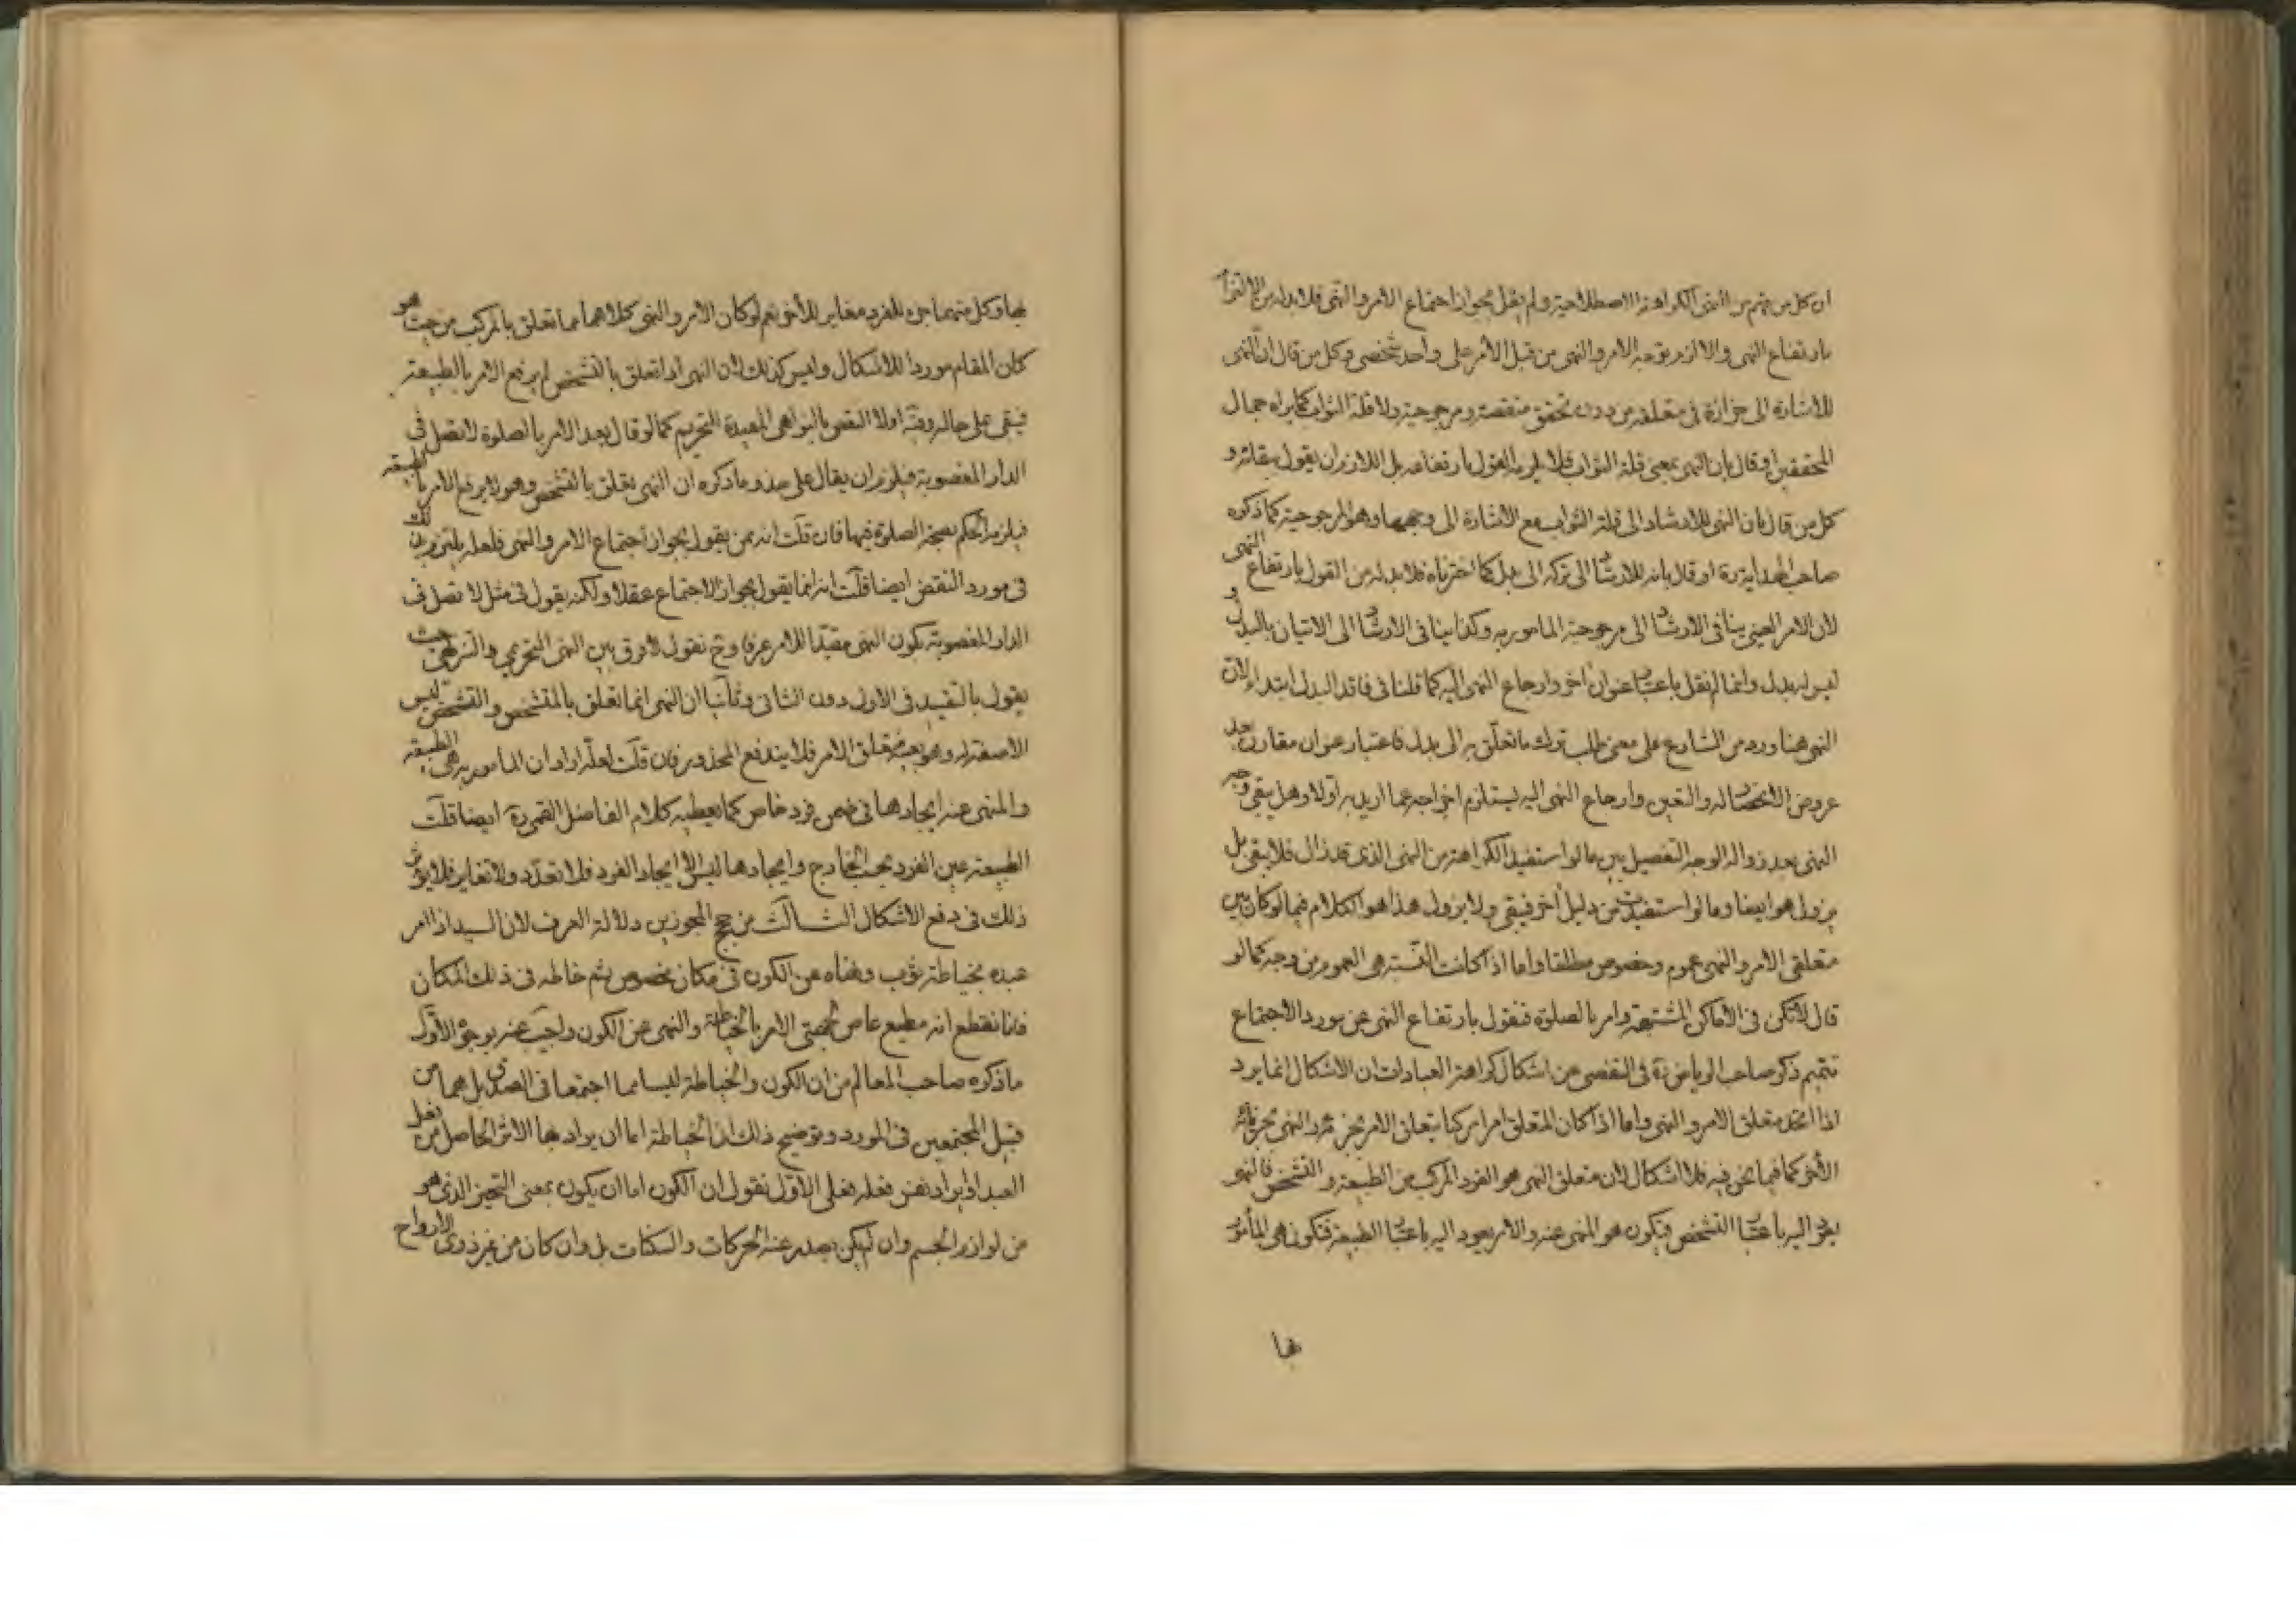 ان كل من فهم من النهى الكراهة الاصطلاحية ولم يقل بجواز اجتماع الامر والنهى فلا بد له من الالتزام
بارتفاع النهى والا لزم توجه الامر والنهى من قبل الامر على واحد شخصى وكل من قال ان النهى
للاشارة الى حزازة فى متعلقه من دون تحقق منقصة ومرجوحية ولا قلة الثواب كما يراه جمال
المحققين او قال بان النهى بمعنى قلة الثواب فلا يلزمه القول بارتفاعه بل اللازم ان يقول ببقائه و
كل من قال بان النهى للارشاد الى قلة الثواب مع الاشارة الى وجهها وهو المرجوحية كما ذكره
صاحب الهداية ره او قال بانه للارشاد الى تركه الى بدل كما اخترناه فلا بد له من القول بارتفاع النهى
لان الامر العينى ينافى الارشاد الى مرجوحية المأمور به وكذا ينافى الارشاد الى الاتيان بالبدل و
ليس له بدل وانما لم نقل باعتبار عنوان اخر وارجاع النهى اليه كما قلنا فى فاقد البدل ابتداء لان
النهى هنا ورد من الشارع على معنى طلب ترك ما تعلّق به الى بدل فاعتبار عنوان مقارن بعد
عروض الانحصار له والتعين وارجاع النهى اليه يستلزم اخراجه عما اريد به اولا وهل يبقى وجه
النهى بعد زواله الوجه التفصيل بين ما لو استفيد الكراهة من النهى الذى قد زال فلا يبقى بل
يزول هو ايضا وما لو استفيدت من دليل اخر فيبقى ولا يزول هذا هو الكلام فيما لو كان بين
متعلقى الامر والنهى عموم وخصوص مطلقا واما اذا كانت النسبة هى العموم من وجه كما لو
قال لا تكن فى الاماكن المشتبهة وامر بالصلوة فنقول بارتفاع النهى عن مورد الاجتماع
تتميم ذكر صاحب الرياض ره فى التفصى عن اشكال كراهة العبادات ان الاشكال انما يرد
اذا اتحد متعلق الامر والنهى واما اذا كان المتعلق امرا مركبا يتعلق الامر بجزئه والنهى بجزئه
الاخر كما فيما نحن فيه فلا اشكال لان متعلق النهى هو الفرد المركب من الطبيعة والتشخص فالنهى
يعود اليه باعتبار التشخص فيكون هو المنهى عنه والامر يعود اليه باعتبار الطبيعة فتكون هى المأمور
بها
بها وكل منهما جزء للفرد مغاير للأخر نعم لو كان الامر والنهى كلاهما مما تعلق بالمركب من حيث هو
كان المقام موردا للاشكال وليس كذلك لان النهى اذا تعلق بالتشخص لم يرفع الامر بالطبيعة
فيبقى على حاله وفيه اولا النقض بالنواهى المفيدة التحريم كما لو قال بعد الامر بالصلوة لا تصل فى
الدار المغصوبة فيلزم ان يقال على حذو ما ذكره ان النهى يتعلق بالتشخص وهو لا يرفع الامر بالطبيعة
فيلزم الحكم بصحة الصلوة فيها فان قلت انه ممن يقول بجواز اجتماع الامر والنهى فلعله يلتزم بذلك
فى مورد النقض ايضا قلت انه انما يقول بجواز الاجتماع عقلا ولكنه يقول فى مثل لا تصل فى
الدار المغصوبة بكون النهى مقيدا للامر عرفا وح نقول لا فرق بين النهى التحريمى والتنزيهى حيث
يقول بالتقييد فى الاول دون الثانى وثانيا ان النهى انما تعلق بالمتشخص والتشخص ليس
الا صفة له وهو بعينه متعلق الامر فلا يندفع المحذور فان قلت لعله اراد ان المأمور به هى الطبيعة
والمنهى عنه ايجادها فى ضمن فرد خاص كما يعطيه كلام الفاضل القمى ره ايضا قلت
الطبيعة عين الفرد بحسب الخارج وايجادها ليس الا ايجاد الفرد فلا تعدّد ولا تغاير فلا يؤثر
ذلك فى دفع الاشكال الثالث من حجج المجوزين دلالة العرف لان السيد اذا امر
عبده بخياطة ثوب ونهاه عن الكون فى مكان مخصوص ثم خاطه فى ذلك المكان
فانا نقطع انه مطيع عاص لجهتى الامر بالخياطة والنهى عن الكون واجيب عنه بوجوه الاول
ما ذكره صاحب المعالم من ان الكون والخياطة ليسا مما اجتمعا فى الصدق بل هما من
قبيل المجتمعين فى المورد وتوضيح ذلك ان الخياطة اما ان يراد بها الاثر الحاصل من فعل
العبد او يراد نفس فعله فعلى الاول نقول ان الكون اما ان يكون بمعنى التحيز الذى هو
من لوازم الجسم وان لم يكن يصدر عنه الحركات والسكنات بل وان كان من غير ذوى الارواح